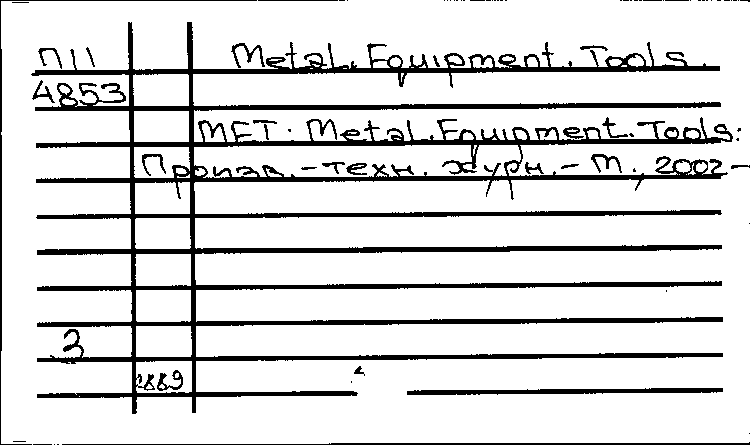 П11 Metal. Equipment. Tools.
4853
MET: Metal. Equipment. Tools:
Произв.-техн. журн.- М., 2002-
3
2889